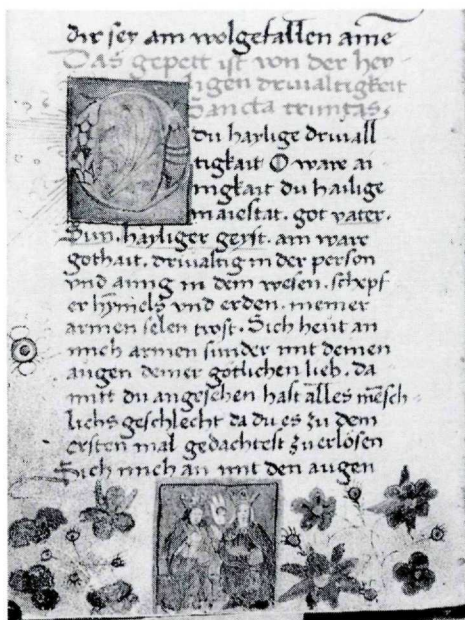 dir sey am wolgefallen ame
Das gepett ist von der hey
ligen drivaltigkeit
Sancta trinitas.
O du haylige drivall
tigkait O ware ai
nigkait du hailige
maiestat. got vater.
Sun. hayliger geyst. am ware
gothait. drivaltig in der person
vnd ainig in dem wesen. schepf
er hȳmels vnd erden. meiner
armen selen trost. Sich heut an
mich armen sunder mit deinen
augen deiner gotlichen lieb. da
mitt du angesehen hast alles mēsch
lichs geschlecht da du es zu dem
ersten mal gedachtest zu erlösen
Sich mich an mit den augen